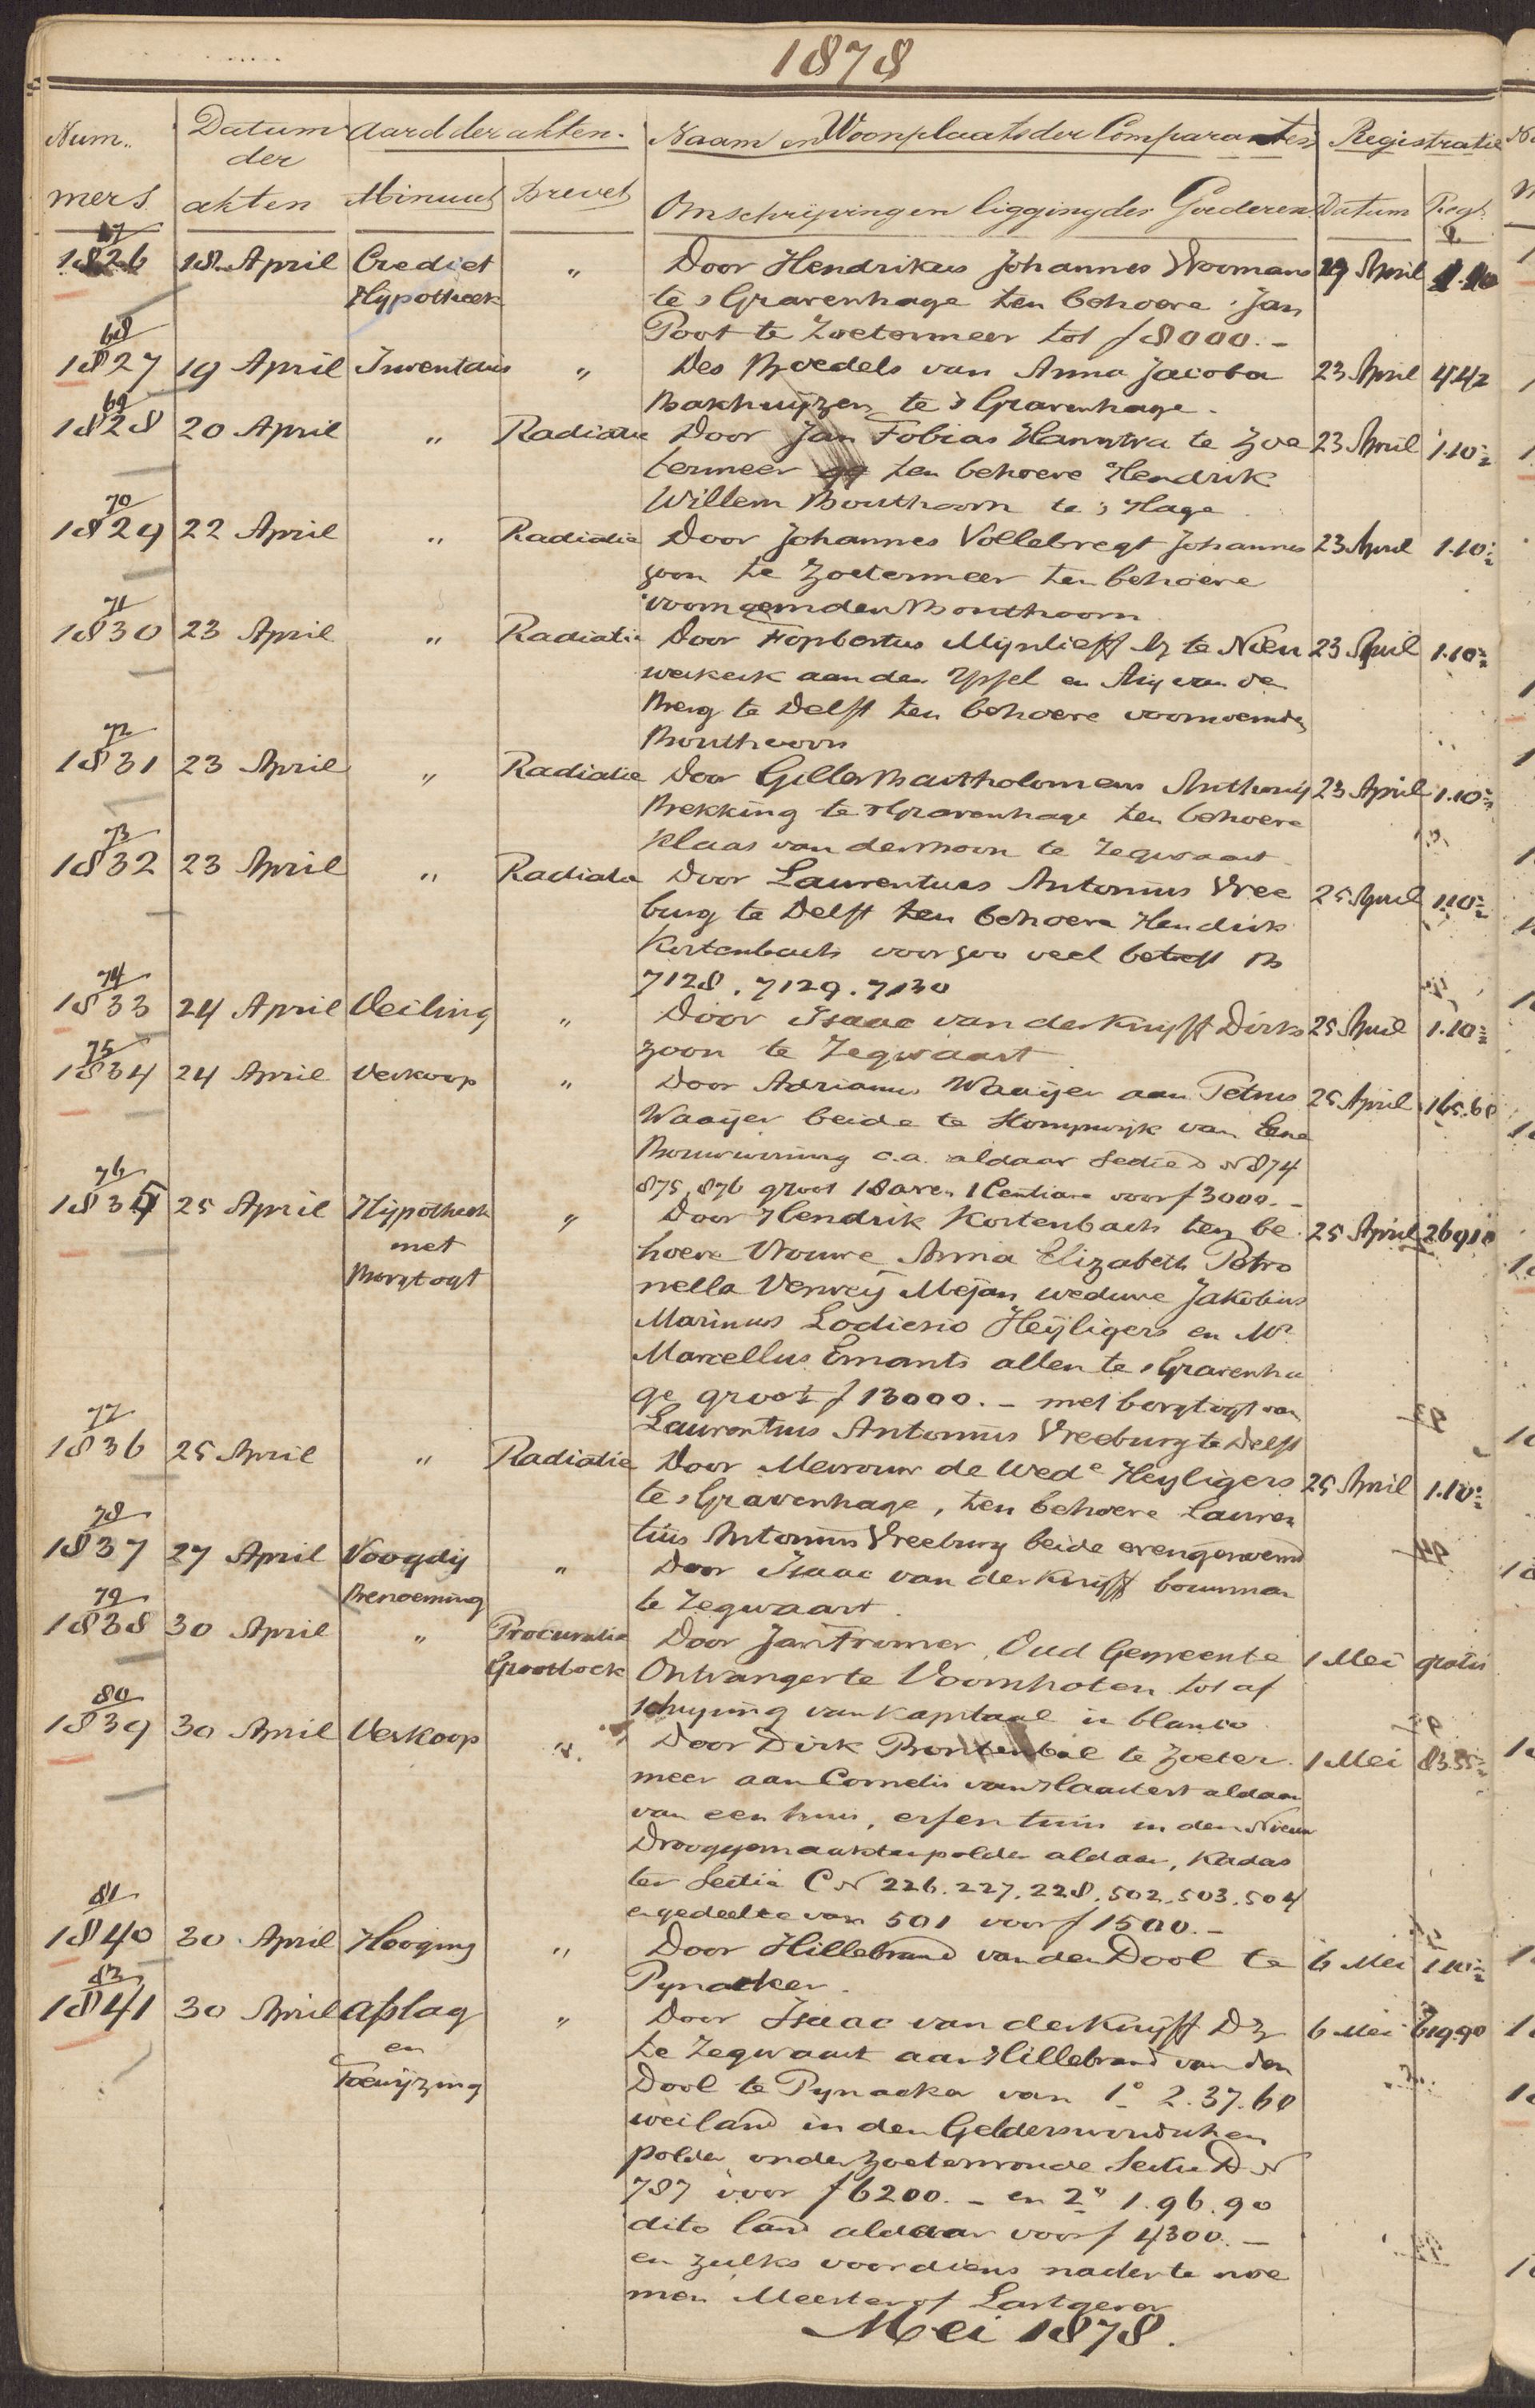 1878
Num.. Datum Aard der akten. Naam en Woonplaats der Comparanten Registratie
der
mers akten Minuut Brevet Omschrijving en ligging der Goederen Datum Regt
67
1826 18 April Crediet " Door Hendrikus Johannes Vroomans 19 April 1.10
Hypotheek te 's Gravenhage ten behoeve Jan
Poot te Zoetermeer tot f 8000.-
68
1827 19 April Inventaris " Des Boedels van Anna Jacoba 23 April 442
Bakhuijzen te 's Gravenhage.
69
1828 20 April " Radiatie Door Jan Fobias Hanstra te Zoe 23 April 1.10½
termeer qq ten behoeve Hendrik
Willem Bouthoorn te 's Hage
70
1829 22 April " Radiatie Door Johannes Vollebregt Johannes 23 April 1.10½
zoon te Zoetermeer ten behoeve
voornoemden Bouthoorn
71
1830 23 April " Radiatie Door Fopbertus Mijnlieff Iz te Nieu 23 April 1.10½
werkerk aan den Yssel en Arij van de
Berg te Delft ten behoeve voornoemden
Bouthoorn
72
1831 23 April " Radiatie Door Gilles Bartholomeus Anthonij 23 April 1.10½
Brekking te 's Gravenhage ten behoeve
Klaas van der Hoorn te Zegwaart
73
1832 23 April " Radiatie Door Laurentius Antonius Vree 25 April 1.10½
burg te Delft ten behoeve Hendrik
Kortenbach voor zoo veel betreft B
7128. 7129. 7130
74
1833 24 April Veiling " Door Isaac van der Knijff Dirks 25 April 1.10½
zoon te Zegwaart
75
1834 24 April Verkoop " Door Adrianus Waaijer aan Petrus 25 April 165.60
Waaijer beide te Stompwijk van Eene
Bouwwoning c.a. aldaar Sectie D N 874
875, 876 groot 18 aren 1 Centiare voor f 3000.-
76
1835 25 April Hijpotheek " Door Hendrik Kortenbach ten be 25 April 26910
met hoeve Vrouwe Anna Elizabeth Petro
Borgtogt nella Verweij Mejan weduwe Jakobus
Marinus Lodiesio Heijligers en Mr
Marcellus Emants allen te 's Gravenha
ge groot f 13000.- met borgtogt van
Laurentius Antonius Vreeburg te Delft
77
1836 25 April " Radiatie Door Mevrouw de Wede Heyligers 25 April 1.10½
te 's Gravenhage, ten behoeve Lauren
tius Antonius Vreeburg beide evengenoemd
78
1837 27 April Voogdij " Door Isaac van der Knijff bouwman
Benoeming te Zegwaart.
79
1838 30 April " Procuratie Door Jan Fromer, Oud Gemeente 1 Mei gratis
Grootboek Ontvanger te Voornhoten tot af
schrijving van Kapitaal in blanco
80
1839 30 April Verkoop " Door Dirk Bontenbal te Zoeter 1 Mei 83.55½
meer aan Cornelis van Haastert aldaar
van een huis, erf en tuin in den Nieuw
Drooggemaakten polder aldaar, Kadas
ter Sectie C N 226. 227. 228. 502. 503. 504
en gedeelte van 501 voor f 1500.-
81
1840 30 April Hooging " Door Hillebrand van den Dool te 6 Mei 1.10½
Pynacker.
82
1841 30 April Afslag " Door Isaac van der Knijff Dz 6 Mei 619.90
en te Zegwaart aan Hillebrand van den
Toewijzing Dool te Pynacker van 1° 2.37.60
weiland in den Gelderswoudschen
polder onder Zoeterwoude Sectie D N
787 voor f 6200.- en 2° 1.96.90
dito land aldaar voor f 4300.-
en zulks voor diens nader te noe
men Meester of Lastgever
Mei 1878.